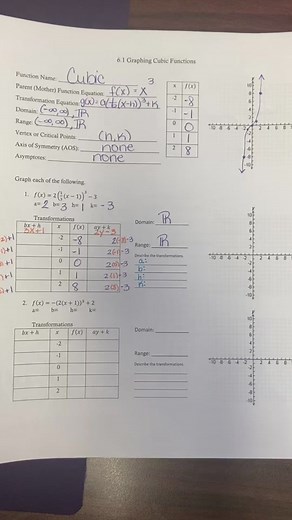 6.1 Graphing Cubic Functions
Function Name: Cubic
Parent (Mother) Function Equation: f(x) = x³
Transformation Equation: g(x) = a(1/b(x-h))³+k
Domain: (-∞,∞), ℝ
Range: (-∞,∞), ℝ
Vertex or Critical Points: (h,k)
Axis of Symmetry (AOS): none
Asymptotes: none
x f(x)
-2 -8
-1 -1
0 0
1 1
2 8
Graph each of the following.
1. f(x) = 2(1/3(x − 1))³ − 3
a= 2 b= 3 h= 1 k= -3
Transformations
bx + h x f(x) ay + k
3x+1 2y-3
-2 -8 2(-8)-3
-1 -1 2(-1)-3
0 0 2(0)-3
1 1 2(1)-3
2 8 2(8)-3
Domain: ℝ
Range: ℝ
Describe the transformations.
a:
b:
h:
k:
2. f(x) = −(2(x + 1))³ + 2
a= b= h= k=
Transformations
bx + h x f(x) ay + k
-2
-1
0
1
2
Domain:
Range:
Describe the transformations.